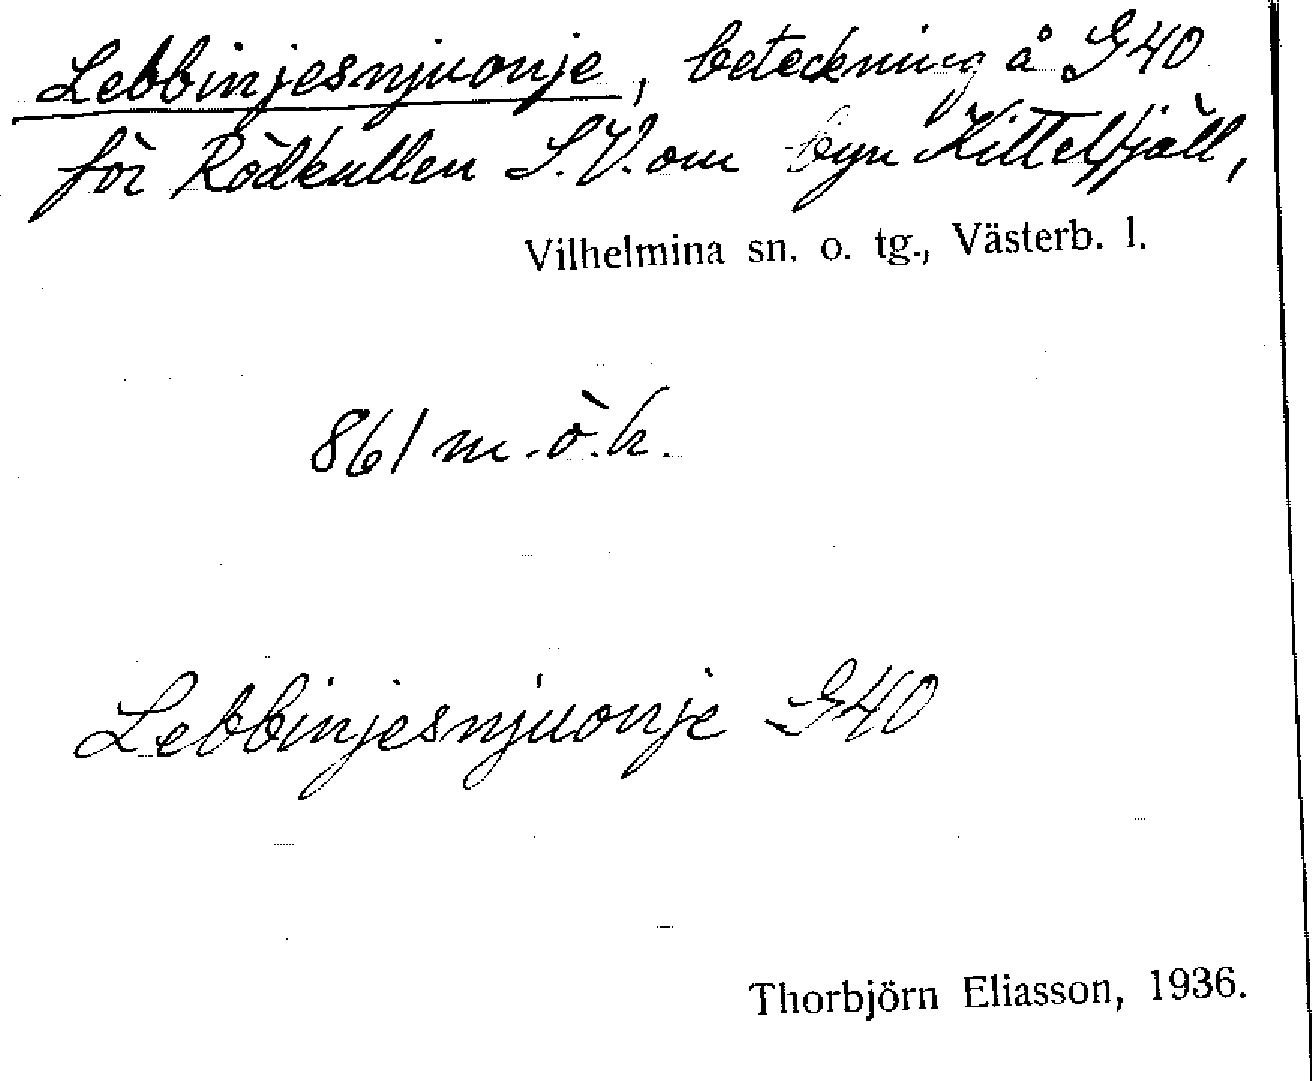 Lebbinjesnjuonje, beteckning å G40
för Rödkullen S.V. om byn Kittelfjäll,
Vilhelmina sn. o. tg., Västerb. l.
861 m.ö.h.
Lebbinjesnjuonje G40
Thorbjörn Eliasson, 1936.